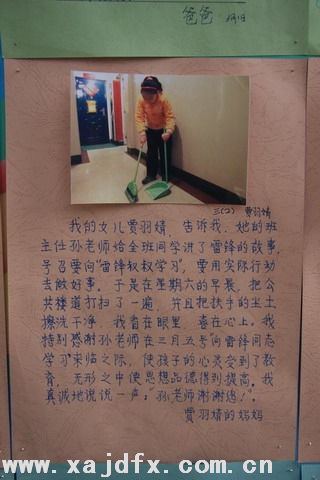 爸爸
三(2) 贾羽婧
我的女儿贾羽婧，告诉我，她的班
主任孙老师给全班同学讲了雷锋的故事，
号召要向"雷锋叔叔学习"，要用实际行动
去做好事。于是在星期六的早晨，把公
共楼道打扫了一遍，并且把扶手的尘土
擦洗干净，我看在眼里，喜在心上。我
特别感谢孙老师在三月五号"向雷锋同志
学习"来临之际，使孩子的心灵受到了教
育，无形之中使思想品德得到提高。我
真诚地说说一声："孙老师谢谢您！"。
贾羽婧的妈妈
www.xajdfx.com.cn